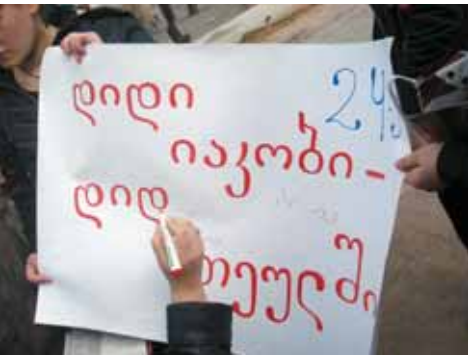 დიდი
იაკობი-
დიდ
თეულში